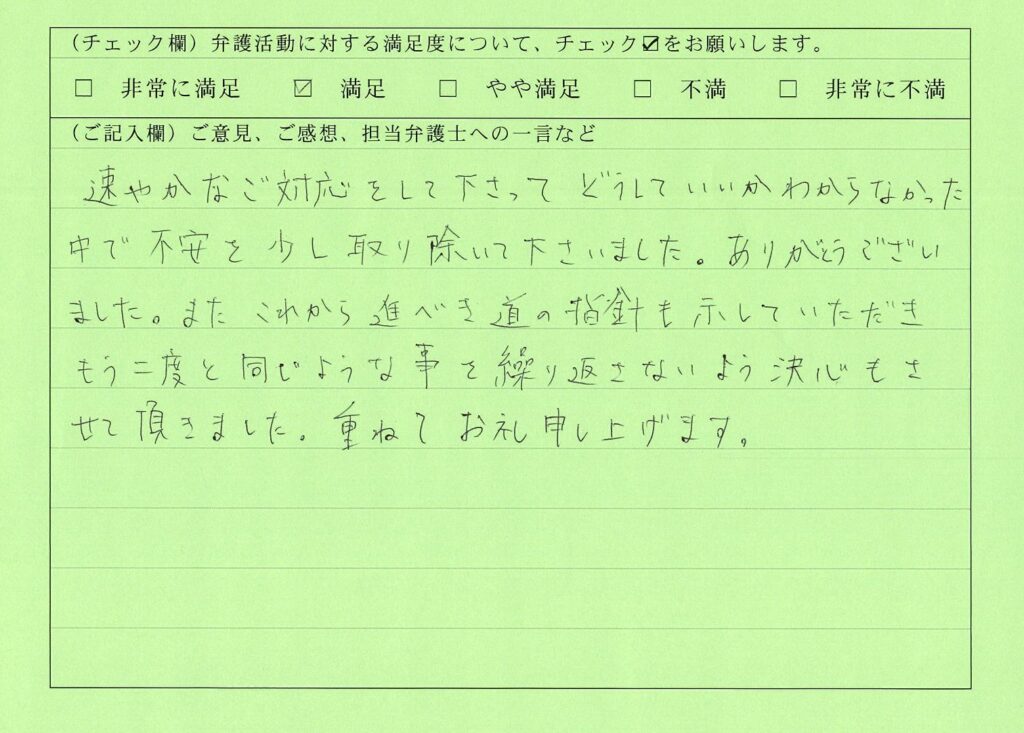 (チェック欄)弁護活動に対する満足度について、チェック☑をお願いします。
□ 非常に満足 ☑ 満足 □ やや満足 □ 不満 □ 非常に不満
(ご記入欄)ご意見、ご感想、担当弁護士への一言など
速やかなご対応をして下さって どうしていいかわからなかった
中で不安を少し取り除いて下さいました。ありがとうござい
ました。また これから進べき道の指針も示していただき
もう二度と同じような事を繰り返さないよう決心もさ
せて頂きました。重ねてお礼申し上げます。